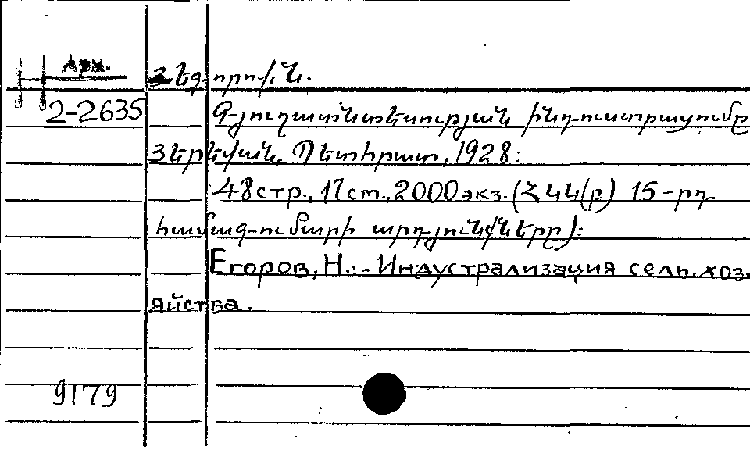 Арм.
Յեգորով, Ն.
2-2635
Գյուղատնտեսության ինդուստրացումը
Յերեվան, Պետհրատ, 1928:
48 стр., 17 cm., 2000 экз. (ՀԿԿ(բ) 15-րդ
համագումարի արդյունքները):
Егоров, Н. - Индустрализация сель. хоз.
яйства.
9179